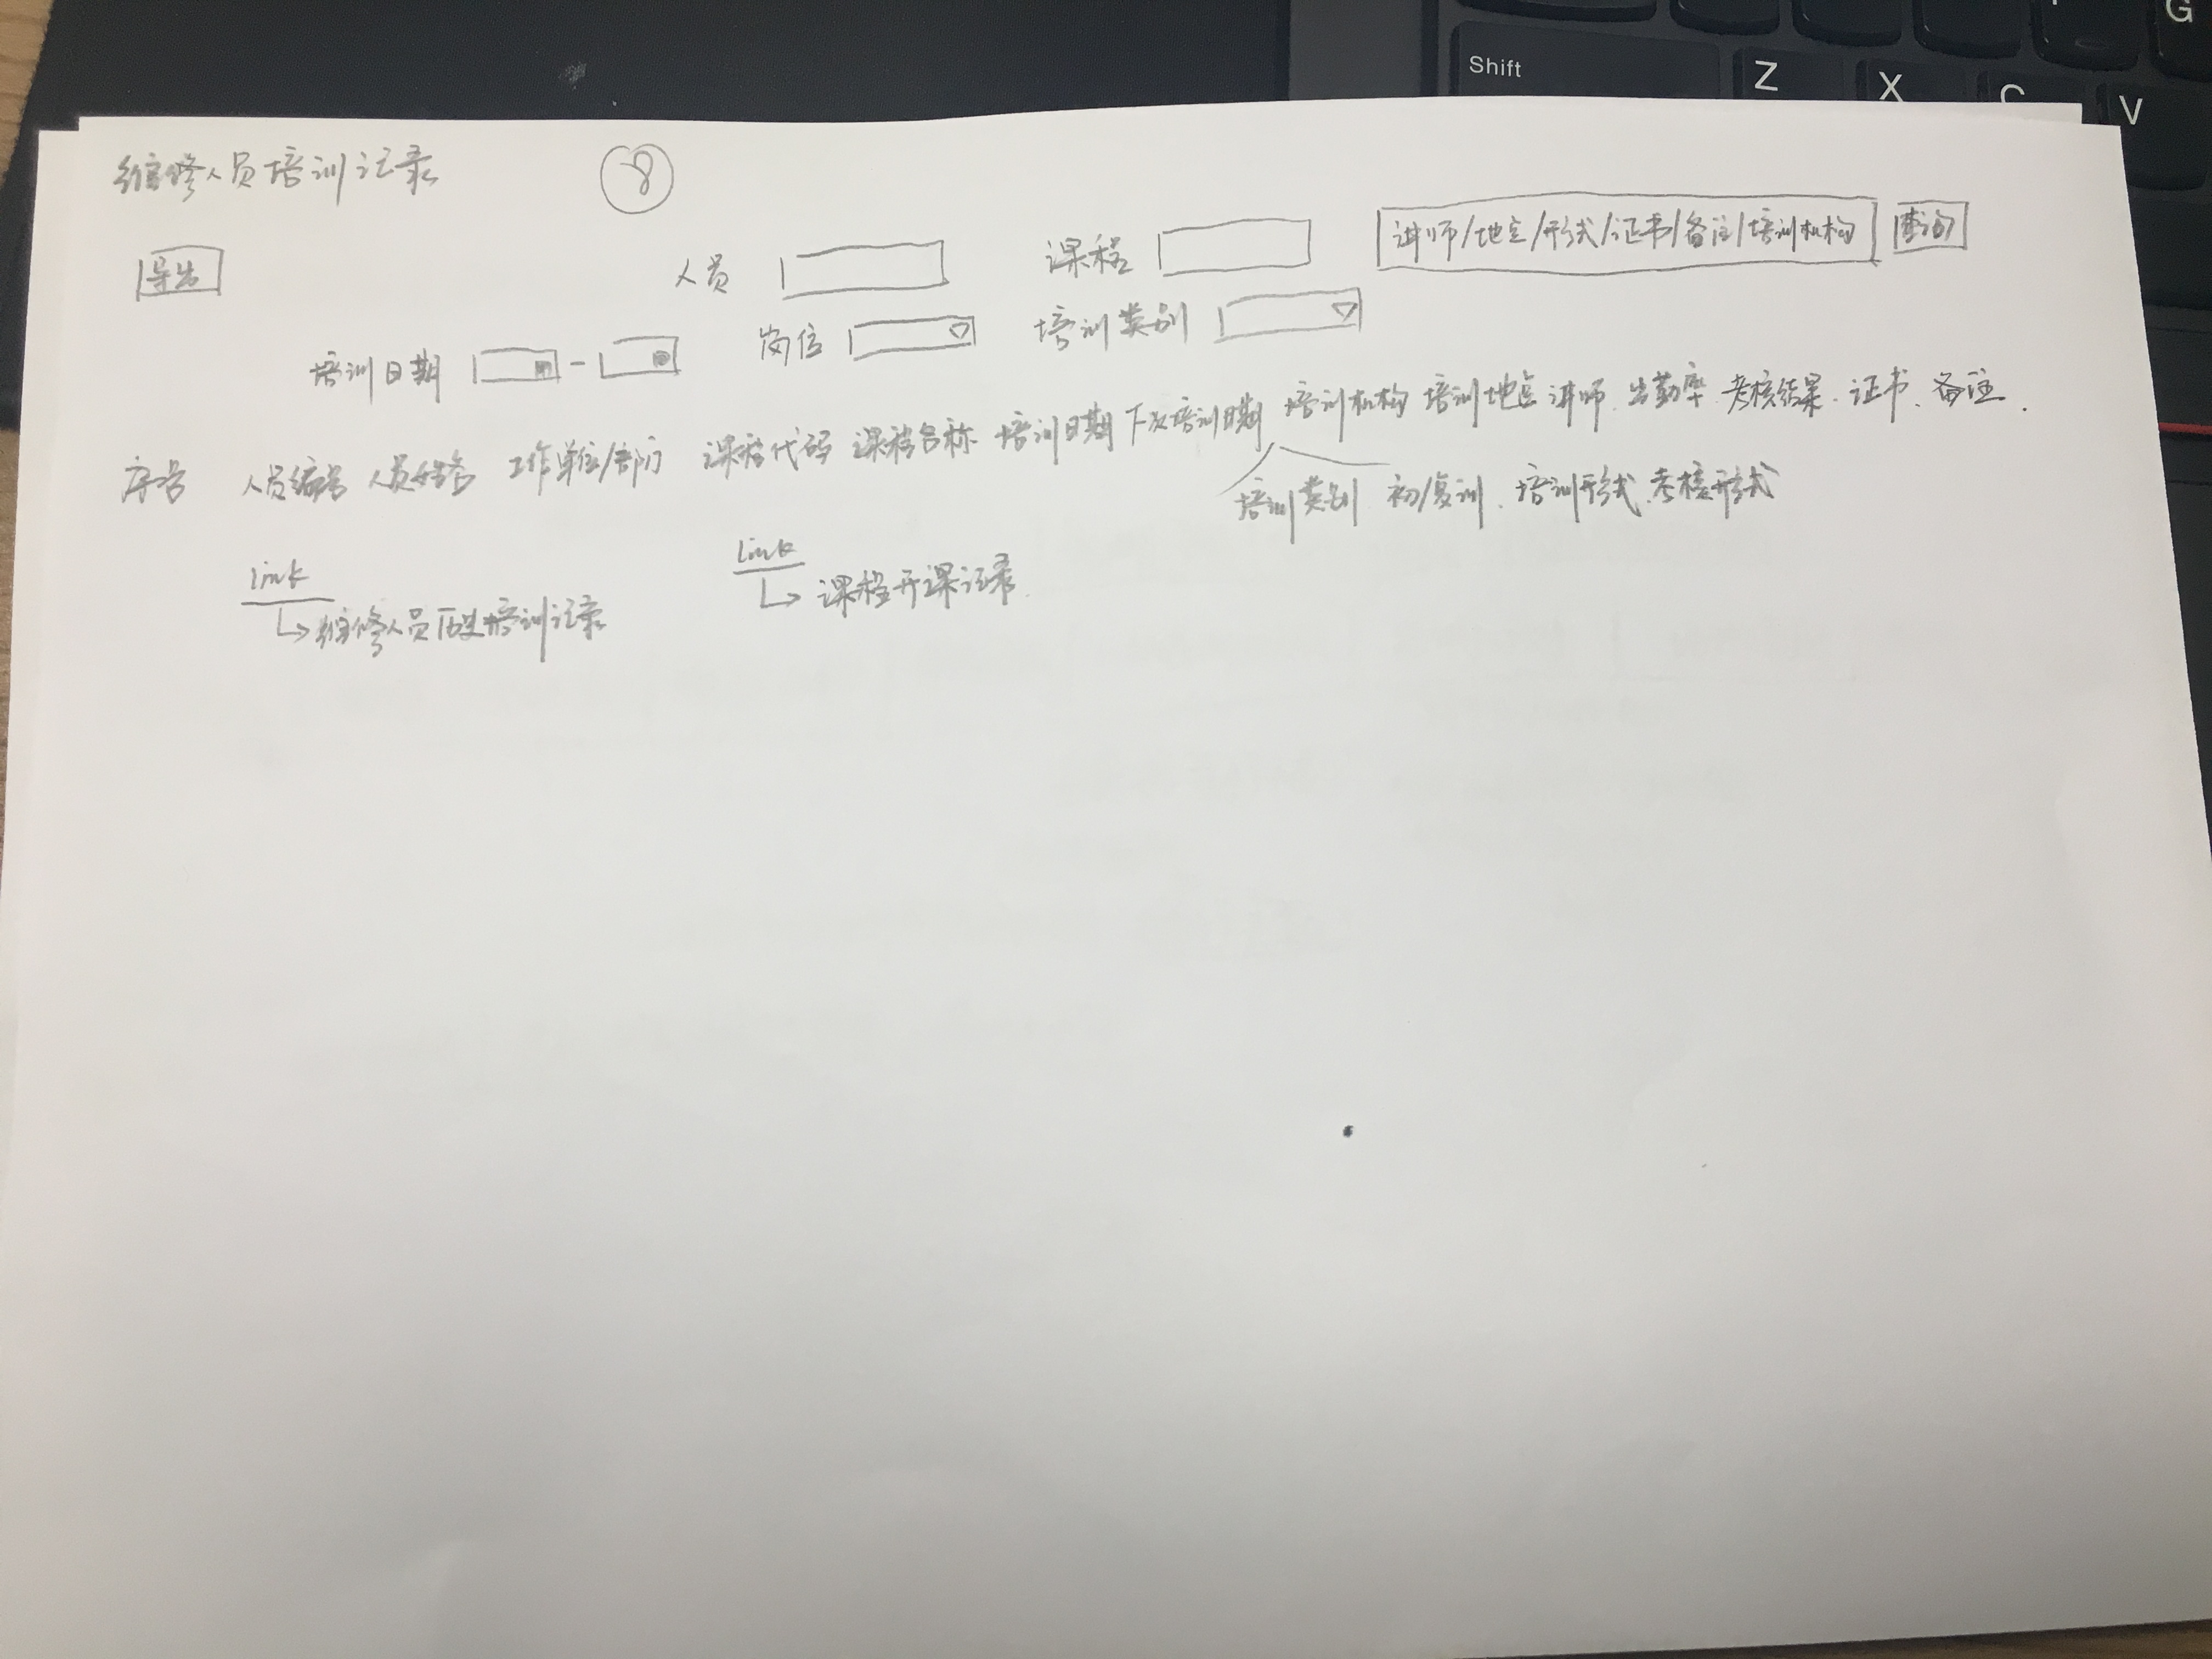 G
Shift Z X C V
维修人员培训记录 ⑧
导出 人员 课程 讲师/地点/形式/证书/备注/培训机构 查询
培训日期 - 岗位 培训类别
序号 人员编号 人员姓名 工作单位/部门 课程代码 课程名称 培训日期 下次培训日期 培训机构 培训地点 讲师 出勤率 考核结果 证书、备注.
培训类别 初/复训、培训形式、考核形式
link link
维修人员历史培训记录 课程开课记录